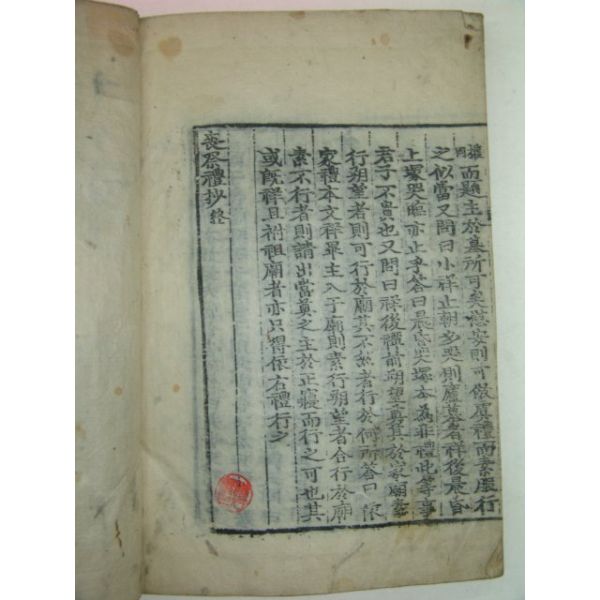 而題主於墓所可矣慰安則可倣虞禮而素服行
之似當又問曰小祥止朝夕哭則廬墓者祥後晨昏
上塚哭臨亦止乎答曰晨昏哭塚本為非禮此等事
君子不貴也又問曰祥後禫前朔望奠其於家廟
行朔望者則可行於廟其不然者行於何所答曰依
家禮本文祥畢主入于廟則素行朔望者合行於廟
素不行者則請出當奠之主於正寢而行之可也其
或旣祥且祔祖廟者亦只得依右禮行之
喪祭禮抄終